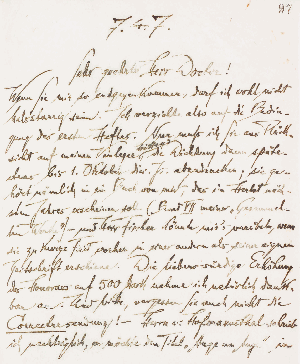 97
7. 4. 7.
Sehr geehrter Herr Doctor!
Wenn Sie mir so entgegenkommen, darf ich wohl nicht
sein. Ich verzichte also auf die Bedin-
gung des ersten Heftes. Nur muss ich Sie aus Rück-
sicht auf meinen Verleger bitten, die Dichtung dann späte-
stens bis 1. Oktober abzudrucken; sie ge-
hört nämlich in ein Buch von mir, das im Herbst
Jahres erscheinen soll (Band VII meiner „Gesammel-
ten Werke“) und Herr Fischer könnte mir's verübeln, wenn
sie zu kurze Zeit vorher in einer andern als seiner eigenen
Zeitschrift erschiene. Die liebenswürdige Erhöhung
des Honorars auf 500 Mark nehme ich natürlich dankbar
an. Und bitte, vergessen Sie auch nicht die
! – Herr v. Hofmannsthal schrieb
ich nachträglich, er möchte den Titel